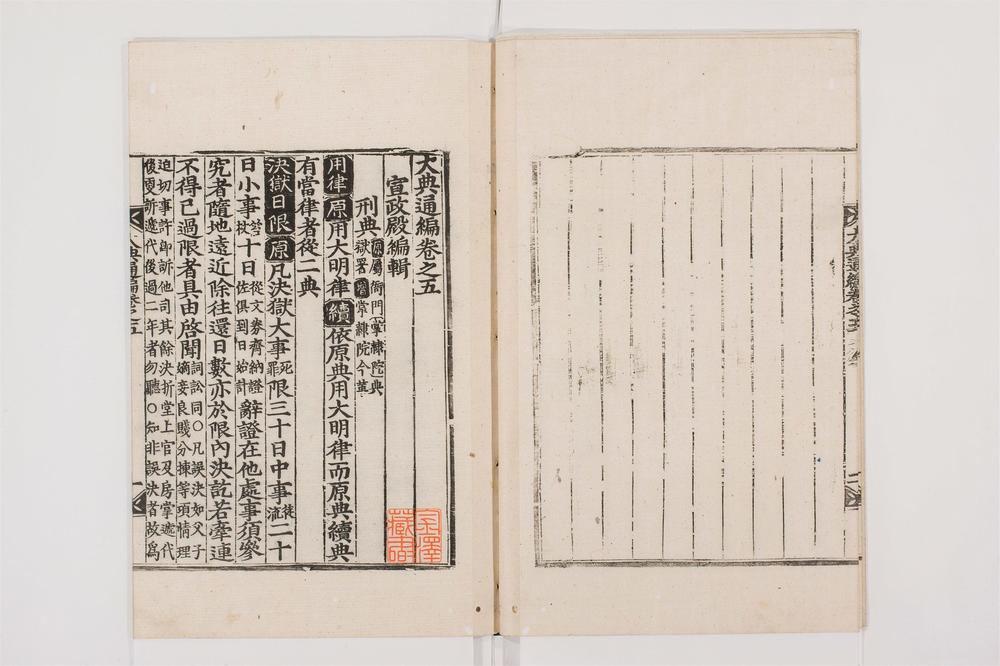 大典通編卷之五
宣政殿編輯
刑典原屬衙門掌隷院典獄署增掌隷院今革
用律原用大明律續依原典用大明律而原典續典
有當律者從二典
決獄日限原凡決獄大事死罪限三十日中事徒流二十
日小事笞杖十日從文券齊納證佐俱到日始計辭證在他處事須參
究者隨地遠近除往還日數亦於限內決訖若牽連
不得已過限者具由啓聞詞訟同○凡誤決如父子嫡妾良賤分揀等項情理
迫切事許卽訴他司其餘決折堂上官及房掌遞代後更訴遞代後過二年者勿聽○知非誤決者故爲
大典通編卷之五
藏書